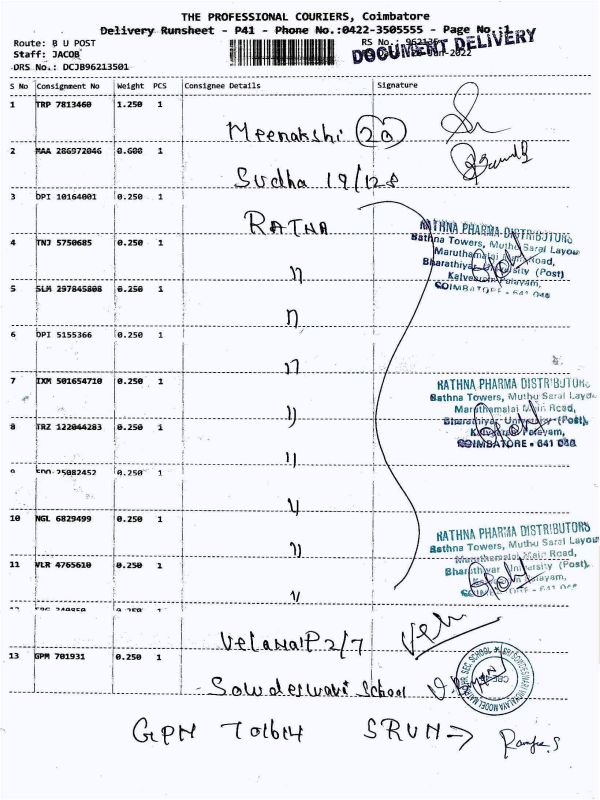 THE PROFESSIONAL COURIERS, Coimbatore
Delivery Runsheet - P41 - Phone No.:0422-3505555 - Page No.:1
Route: B U POST
RS No.: 962135
DOCUMENT DELIVERY
Staff: JACOB
DRS No.: DCJB96213501
S No Consignment No Weight PCS Consignee Details Signature
1 TRP 7813460 1.250 1
Meenakshi 20
2 MAA 286972046 0.600 1
Sudha 19/128
3 DPI 10164001 0.250 1
RATNA
RATHNA PHARMA DISTRIBUTORS
Rathna Towers, Muthu Saral Layou
4 TNJ 5750685 0.250 1
Maruthamalai Main Road,
Bharathiyar University (Post)
Kalveerampalayam,
5 SLM 297845808 0.250 1
COIMBATORE - 641 046
6 DPI 5155366 0.250 1
7 IXM 501654710 0.250 1
RATHNA PHARMA DISTRIBUTORS
Rathna Towers, Muthu Saral Layou
Maruthamalai Main Road,
8 TRZ 122044283 0.250 1
Bharathiyar University (Post),
Kalveeram Palayam,
COIMBATORE - 641 046
9 25082452 0.250 1
10 NGL 6829499 0.250 1
RATHNA PHARMA DISTRIBUTORS
Rathna Towers, Muthu Saral Layou
Maruthamalai Main Road,
11 VLR 4765610 0.250 1
Bharathiyar University (Post),
Palayam,
Velanai P 2/7
13 GPM 701931 0.250 1
Sowdeswari School
GPM 701614 SRUN